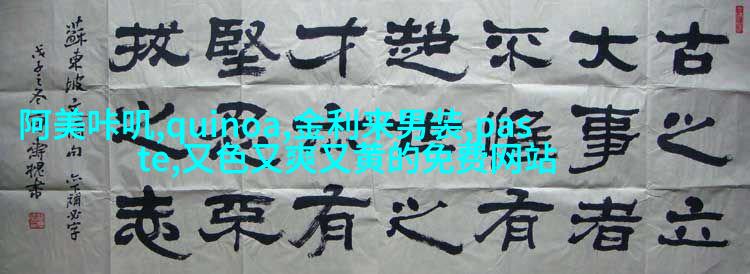 阿美咔叽,quinoa,金利来男装,pas
te,又色又爽又黄的免费网站
古之立
大事者
不惟有
超世之
才亦有
堅忍不
拔之志
蘇東坡 句 亦下補必字
戊子之冬 書